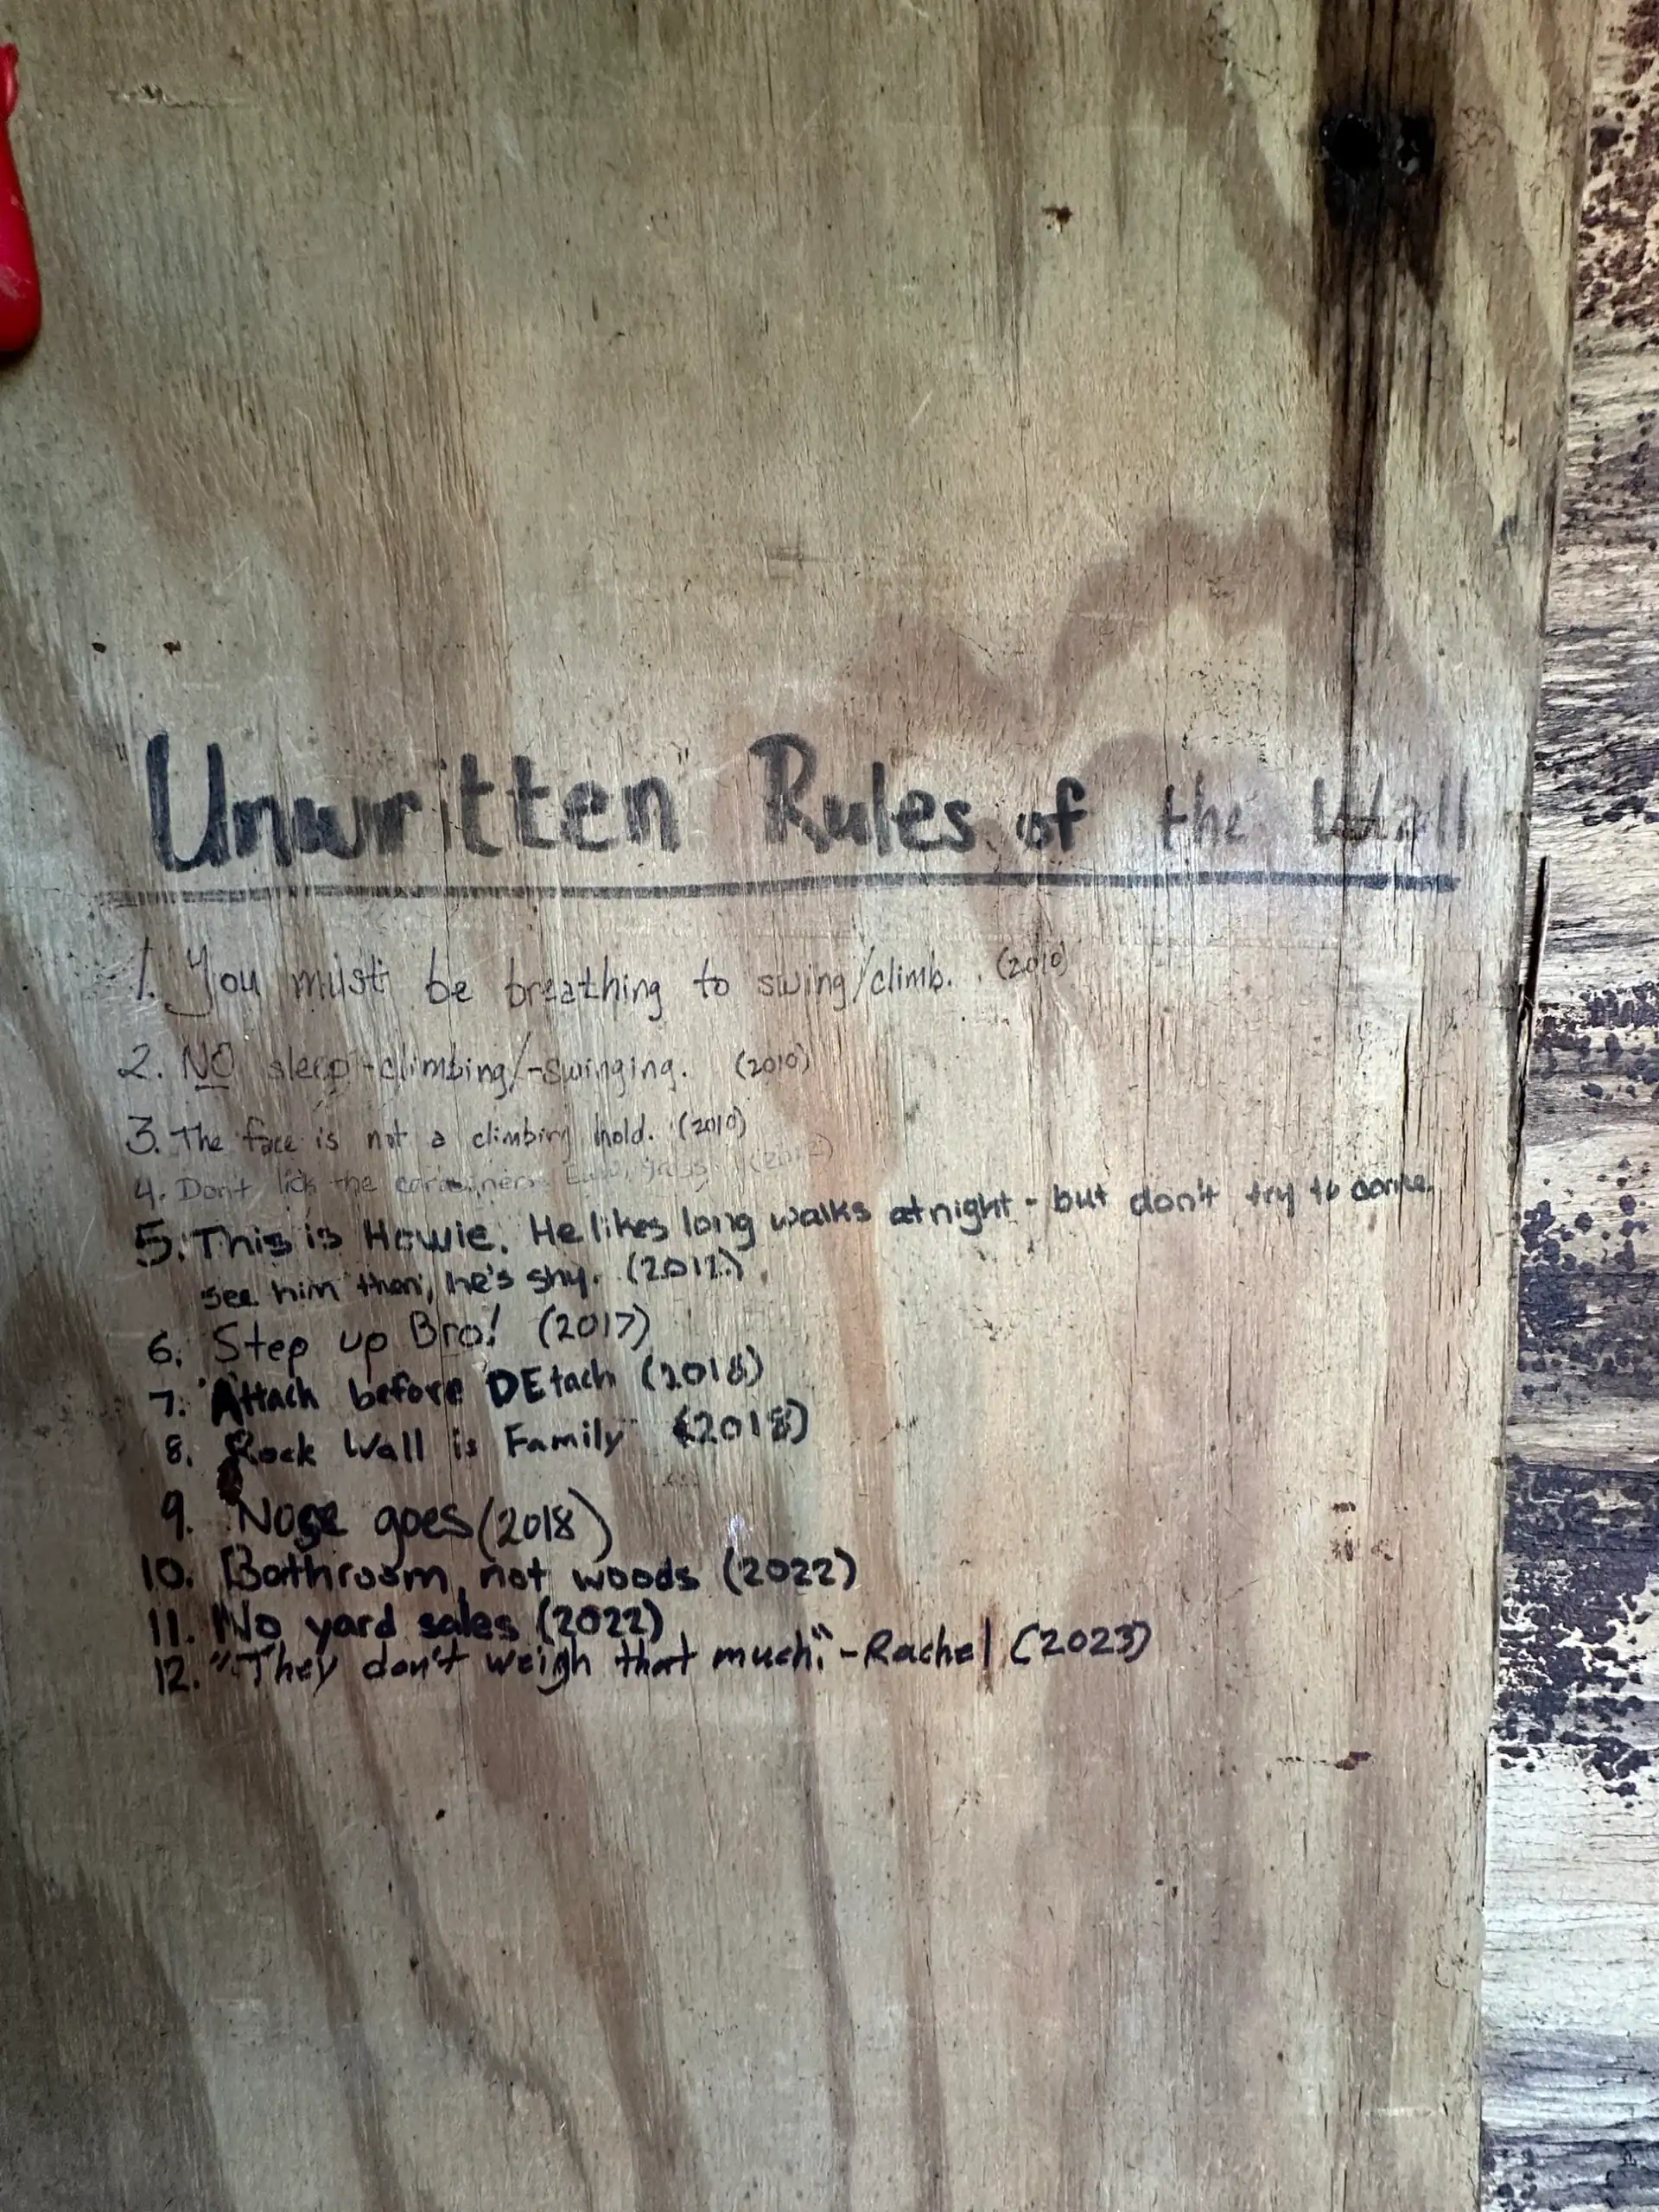 Unwritten Rules of the Wall
1. You must be breathing to swing/climb. (2010)
2. NO sleep-climbing/-swinging. (2010)
3. The face is not a climbing hold. (2010)
4. Don't lick the carabiners. Eww, gross.
5. This is Howie. He likes long walks at night - but don't try to come
see him then, he's shy. (2012)
6. Step up Bro! (2017)
7. Attach before DEtach (2018)
8. Rock Wall is Family (2018)
9. Nose goes (2018)
10. Bathroom, not woods (2022)
11. No yard sales (2022)
12. "They don't weigh that much." -Rachel (2023)